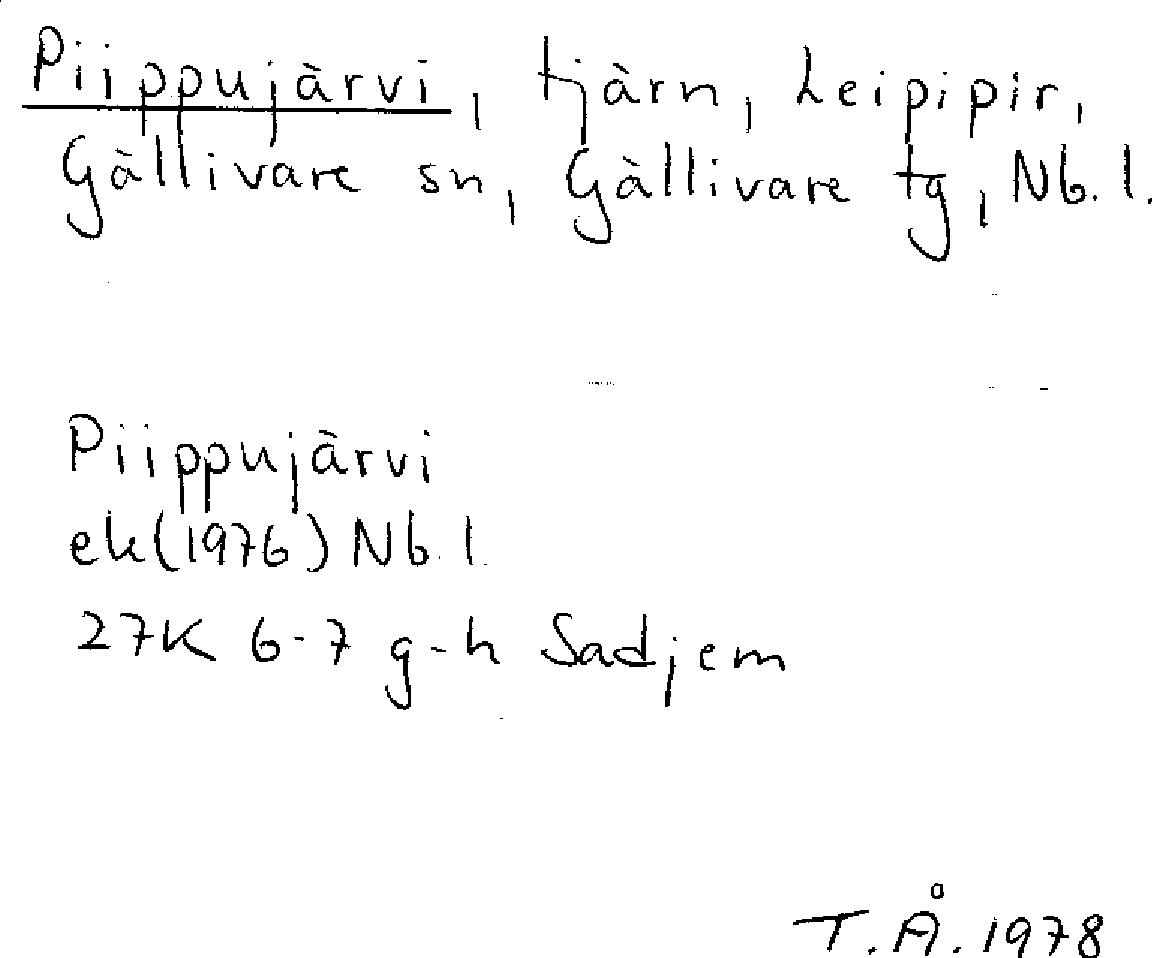 Piippujärvi, tjärn, Leipipir,
Gällivare sn, Gällivare tg, Nb. l.
Piippujärvi
ek (1976) Nb. l.
27K 6-7 g-h Sadjem
T.Å. 1978